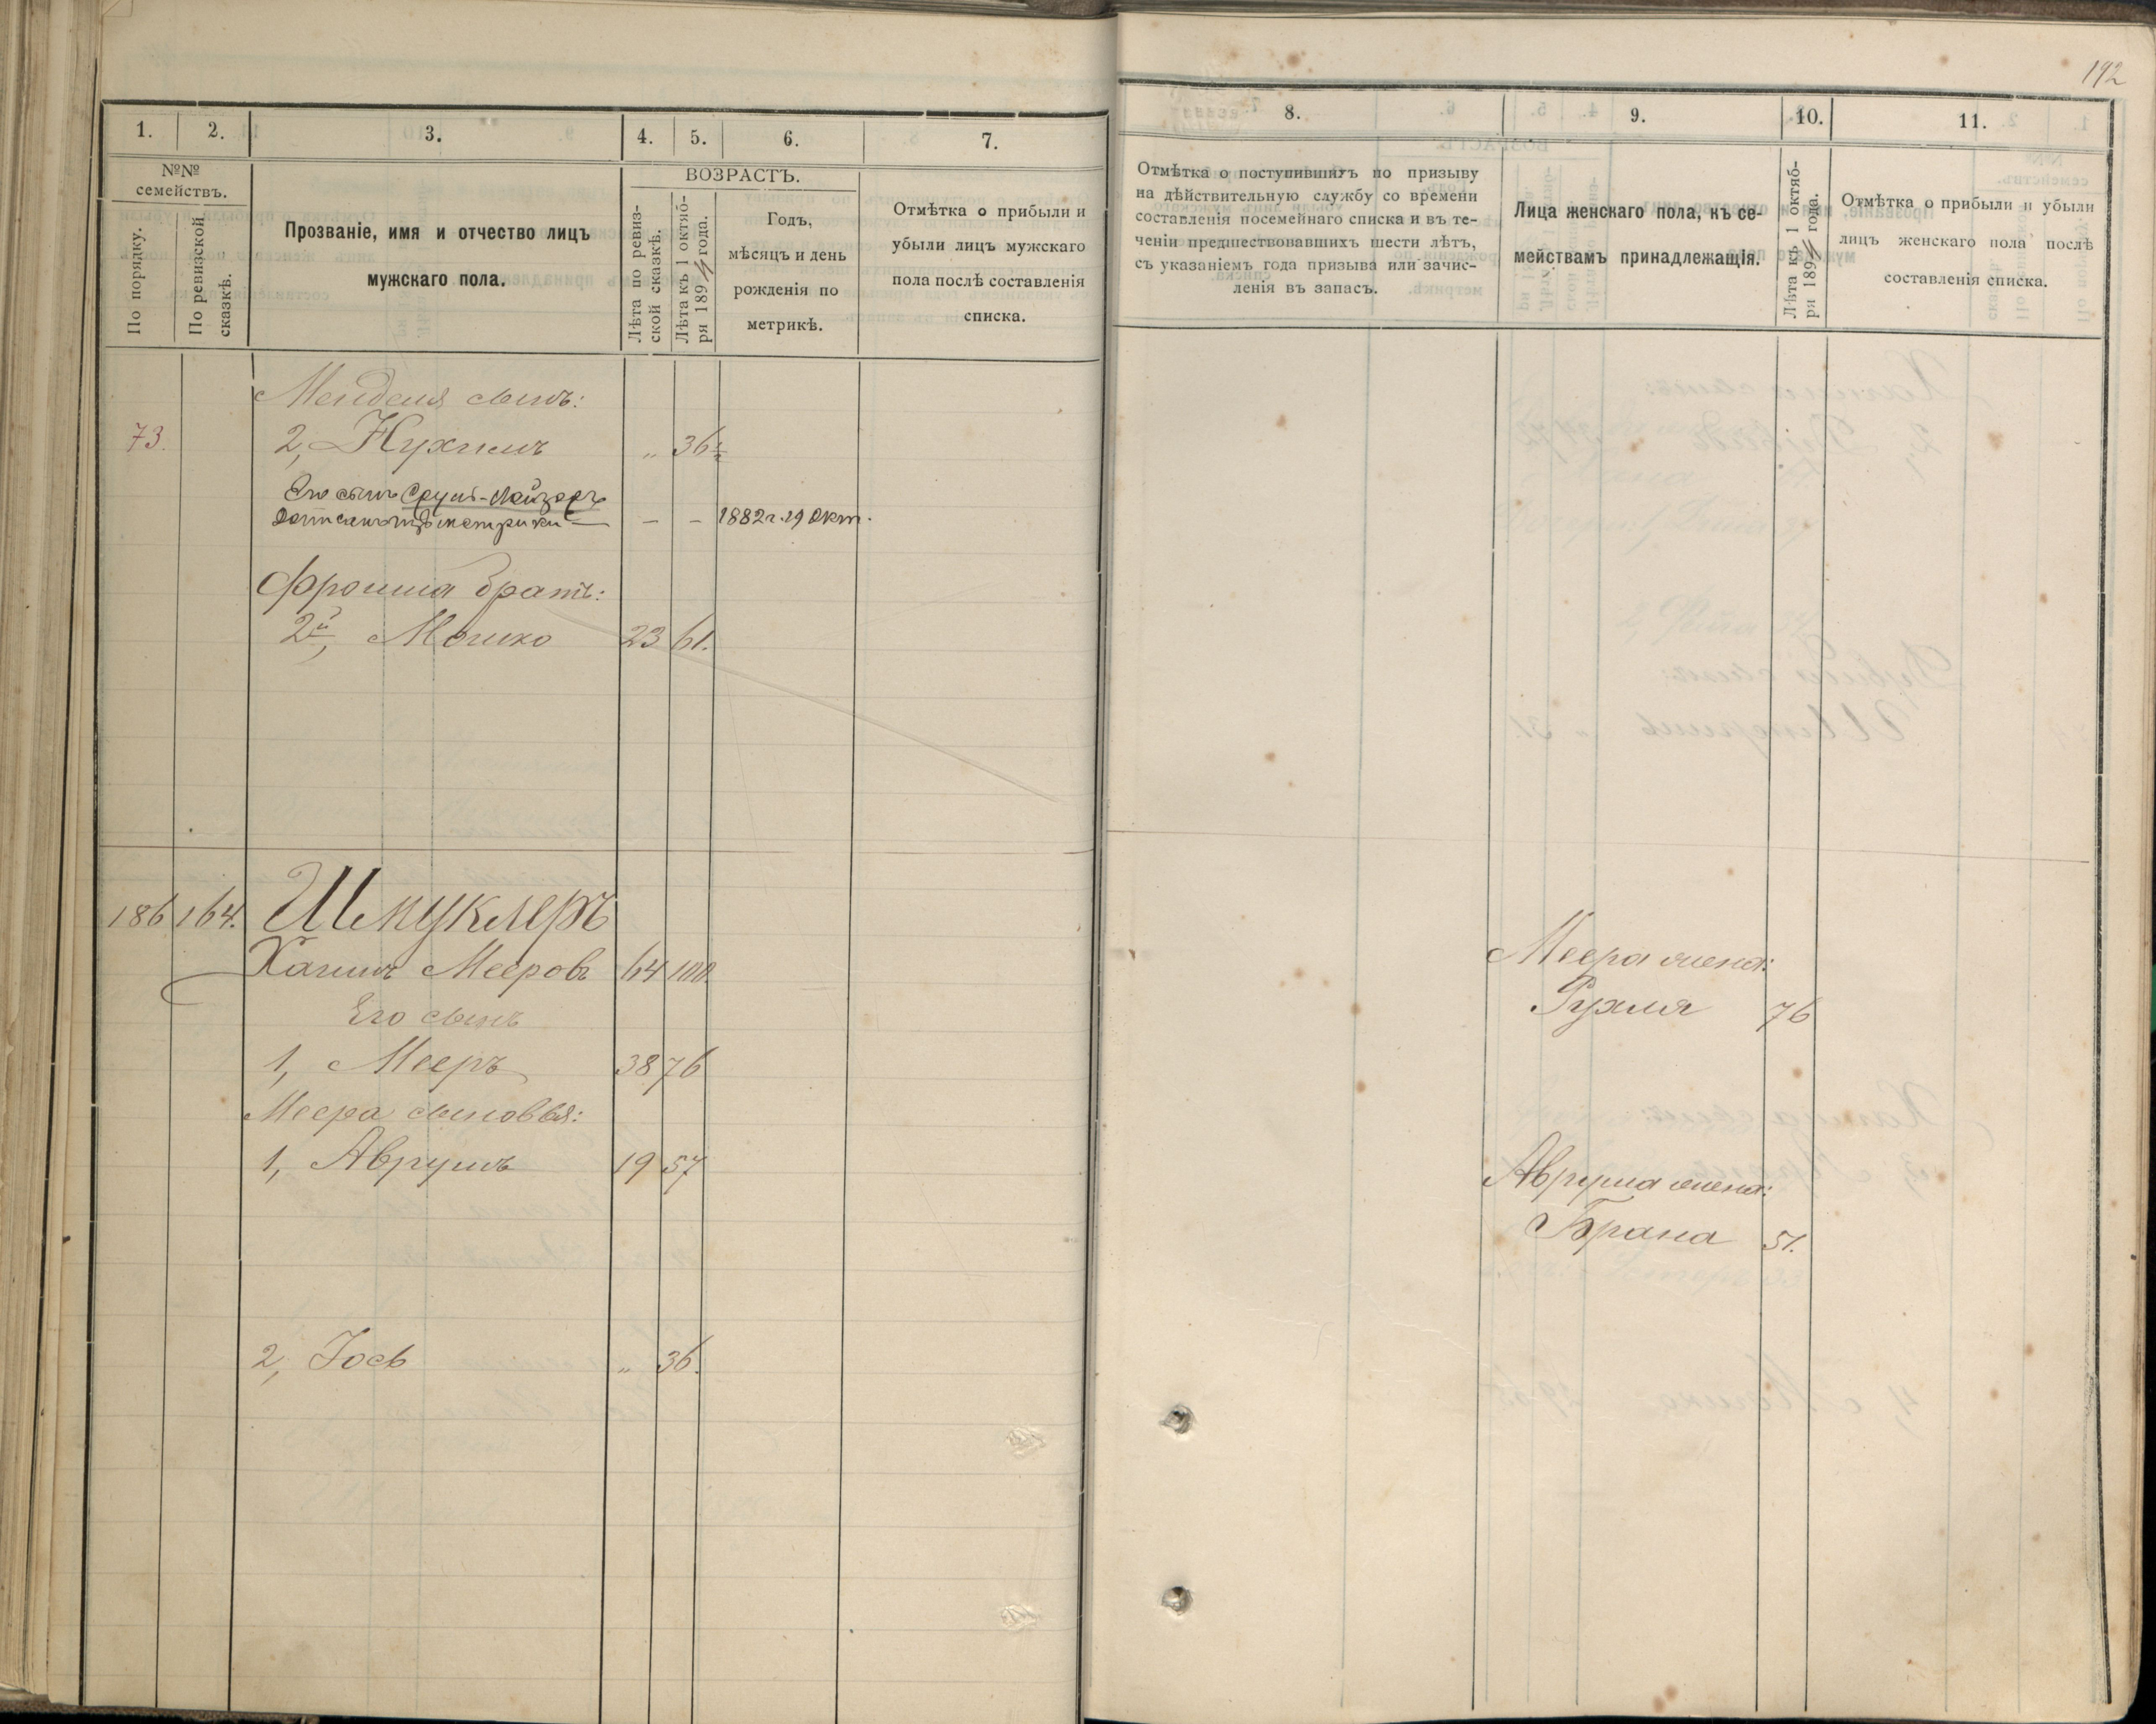 192
1.
2.
3.
4.
5.
6.
7.
№№ семействъ.
По порядку.
По ревизской сказкѣ.
Прозваніе, имя и отчество лицъ
мужскаго пола.
ВОЗРАСТЪ.
Лѣта по ревиз-
ской сказкѣ.
Лѣта къ 1 октяб-
ря 189 года.
Годъ,
мѣсяцъ и день
рожденія по
метрикѣ.
Отмѣтка о прибыли и
убыли лицъ мужскаго
пола послѣ составленія
списка.
Менделя сынъ:
73. 2, Нухимъ „ 36½
Его сынъ Сруль-Лейзоръ
дописанъ изъ метрики — – – 1882 г. 19 Окт.
Фроима братъ:
2й, Мошко 23 61.
186 164. Шмуклеръ
Хаимъ Мееровъ 64 100.
Его сынъ
1, Мееръ 38 76
Меера сыновья:
1, Аврумъ 19 57
2, Іось „ 36.
8.
9.
10.
11.
Отмѣтка о поступившихъ по призыву
на дѣйствительную службу со времени
составленія посемейнаго списка и въ те-
ченіи предшествовавшихъ шести лѣтъ,
съ указаніемъ года призыва или зачис-
ленія въ запасъ.
Лица женскаго пола, къ се-
мействамъ принадлежащія.
Лѣта къ 1 октяб-
ря 189 года.
Отмѣтка о прибыли и убыли
лицъ женскаго пола послѣ
составленія списка.
Меера жена:
Рухля 76
Аврума жена:
Брана 51.